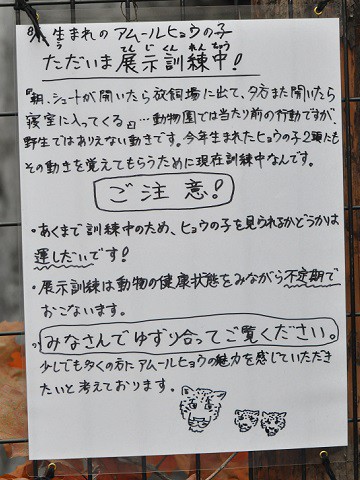 8月生まれのアムールヒョウの子
ただいま展示訓練中!
うてんじくんれんちゅう
『朝、シュートが開いたら放飼場に出て、夕方また開いたら
寝室に入ってくる』…動物園では当たり前の行動ですが、
野生ではありえない動きです。今年生まれたヒョウの子2頭にも
その動きを覚えてもらうために現在訓練中なんです。
ご注意!
・あくまで訓練中のため、ヒョウの子を見られるかどうかは
運しだいです!
・展示訓練は動物の健康状態をみながら不定期で
おこないます。
みなさんでゆずり合ってご覧ください。
少しでも多くの方にアムールヒョウの魅力を感じていただき
たいと考えております。